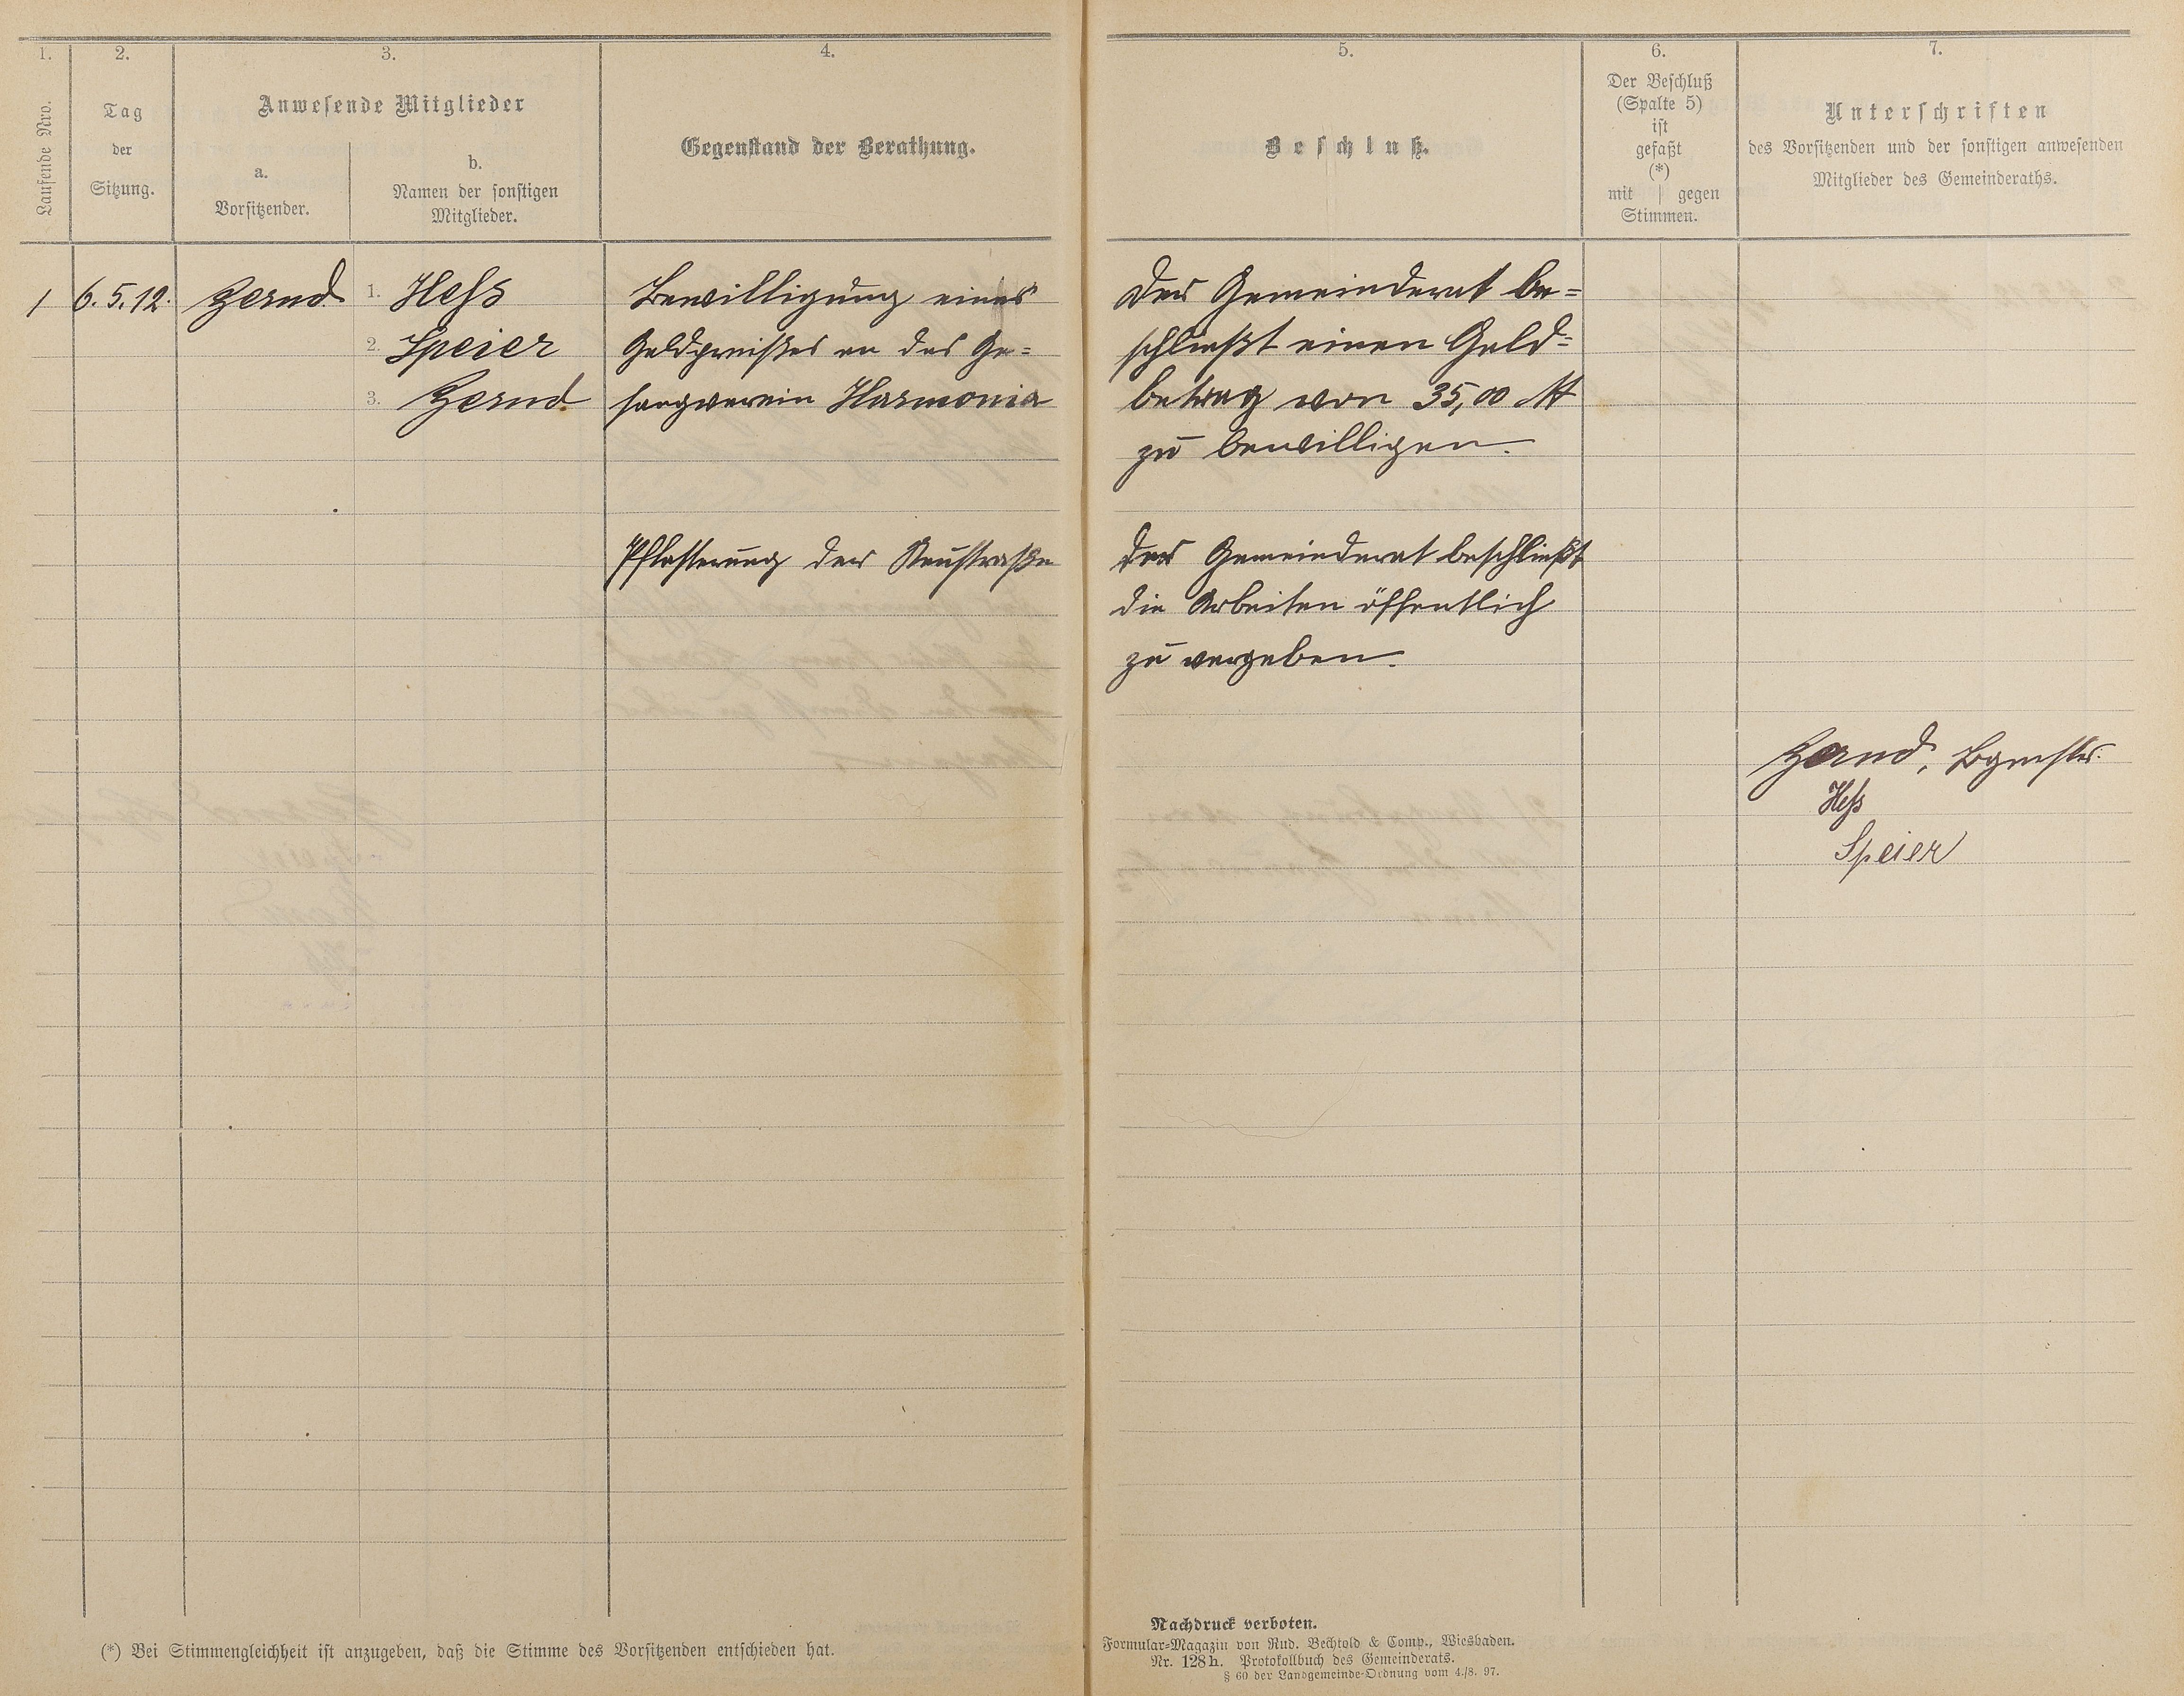 1.
2.
3.
4.
Laufende Nro.
Tag
der
Sitzung.
Anwesende Mitglieder
a.
Vorsitzender.
b.
Namen der sonstigen
Mitglieder.
Gegenstand der Berathung.
1
6.5.12.
Zernd.
1. Heß
2. Speier
3. Zernd.
Bewilligung eines
Geldpreißes an des Ge=
sangverein Harmonia
Pflasterung der Neustraße
(*) Bei Stimmengleichheit ist anzugeben, daß die Stimme des Vorsitzenden entschieden hat.
5.
6.
7.
Beschluß.
Der Beschluß
(Spalte 5)
ist
gefaßt
(*)
mit gegen
Stimmen.
Unterschriften
des Vorsitzenden und der sonstigen anwesenden
Mitglieder des Gemeinderaths.
Der Gemeinderat be=
schließt einen Geld=
betrag von 35,00 M
zu bewilligen.
Der Gemeinderat beschließt
die Arbeiten öffentlich
zu vergeben.
Zernd, Bgmstr.
Heß
Speier
Nachdruck verboten.
Formular-Magazin von Rud. Bechtold & Comp., Wiesbaden.
Nr. 128h. Protokollbuch des Gemeinderats.
§ 60 der Landgemeinde-Ordnung vom 4./8. 97.